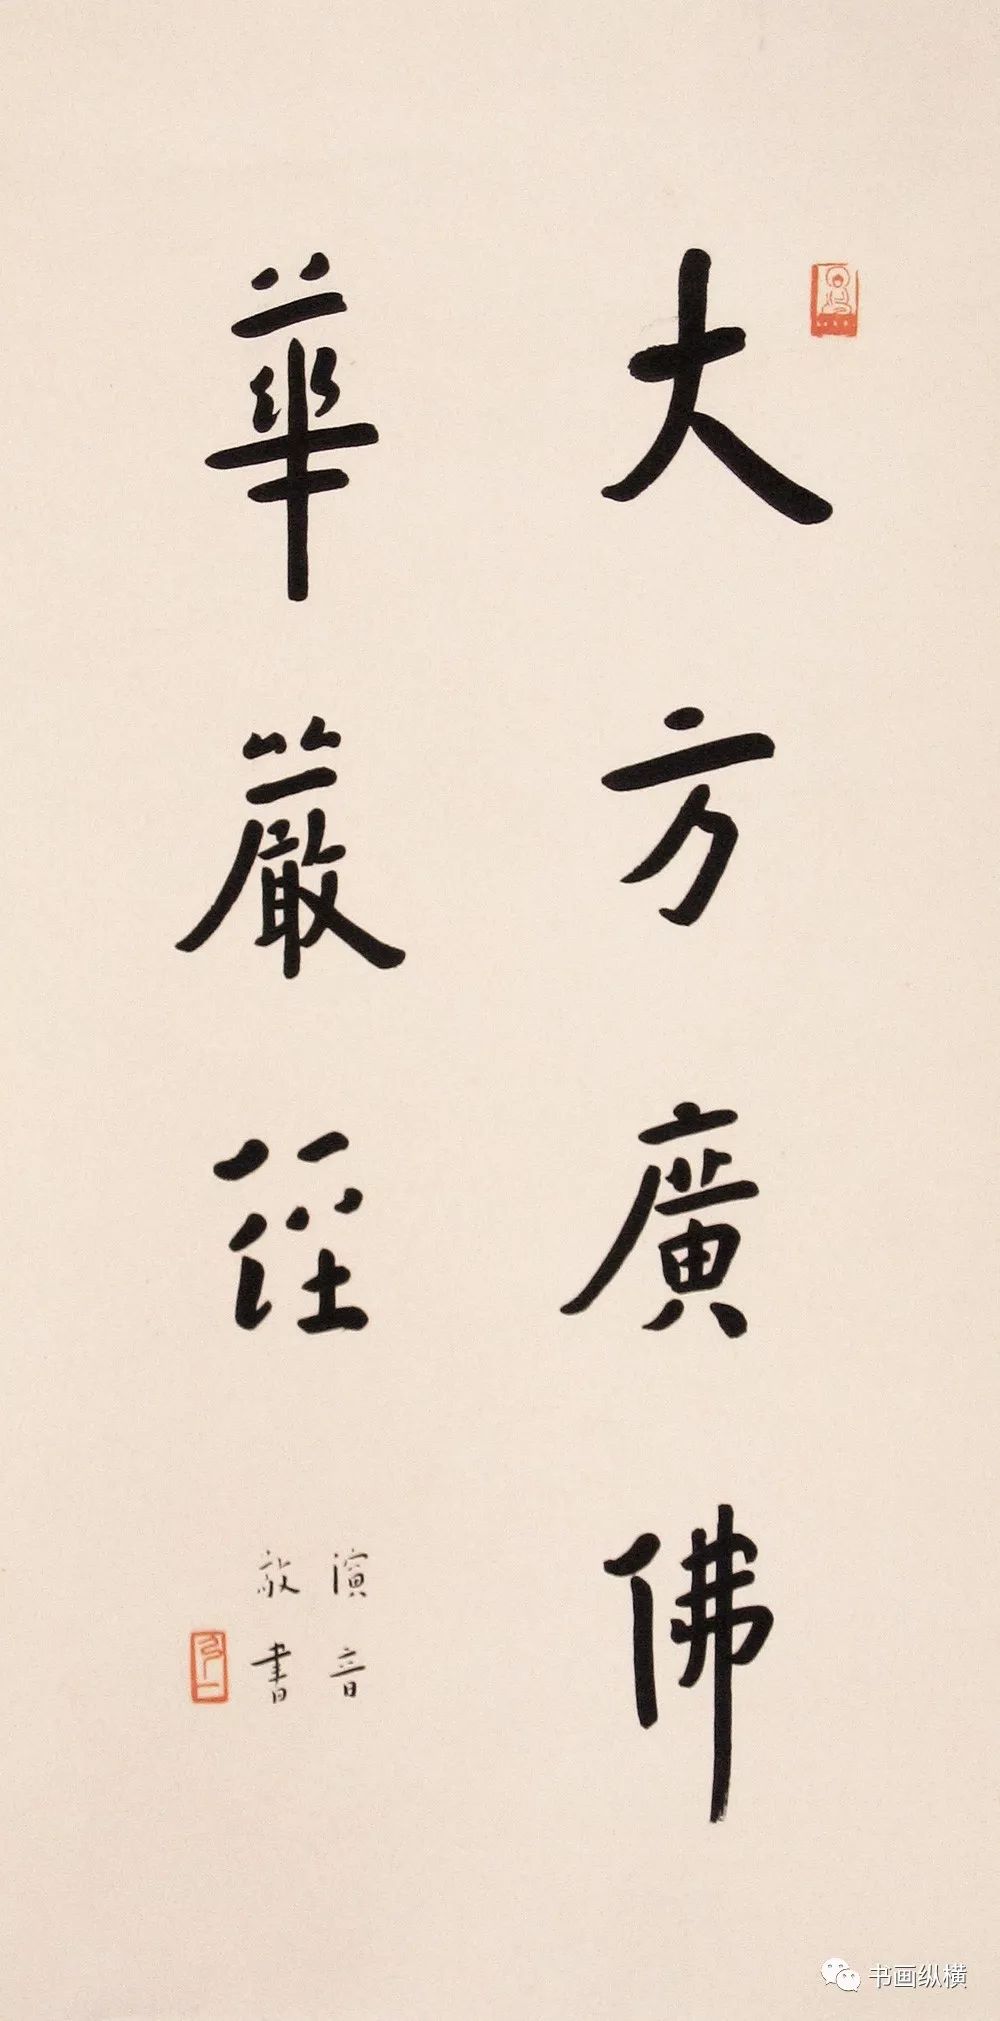 大方廣佛
華嚴經
演音
敬書
弘一
书画纵横